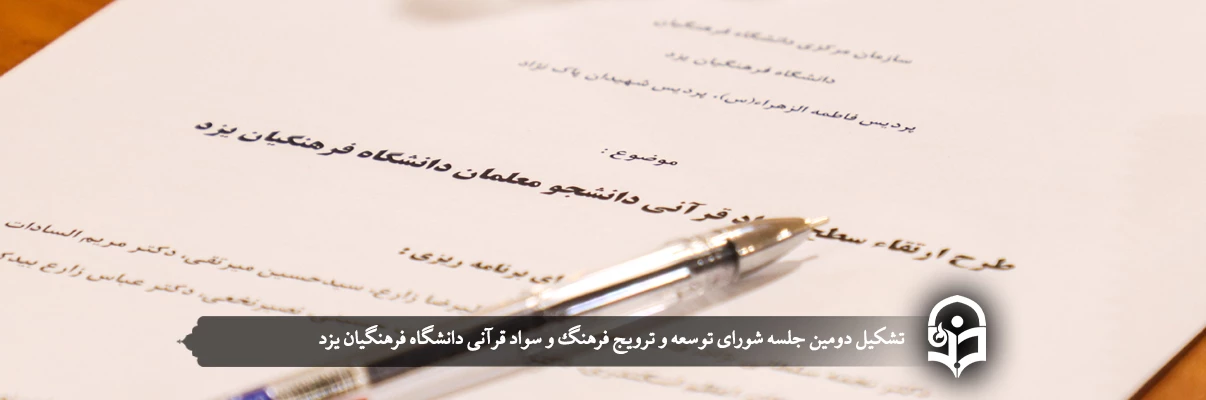 سازمان مرکزی دانشگاه فرهنگیان
دانشگاه فرهنگیان یزد
پردیس فاطمه الزهراء(س)، پردیس شهیدان پاک نژاد
موضوع :
طرح ارتقاء سطح قرآنی دانشجو معلمان دانشگاه فرهنگیان یزد
برنامه ریزی:
زارع، سیدحسین میرتقی، دکتر مریم السادات
دکتر عباس زارع
تشکیل دومین جلسه شورای توسعه و ترویج فرهنگ و سواد قرآنی دانشگاه فرهنگیان یزد